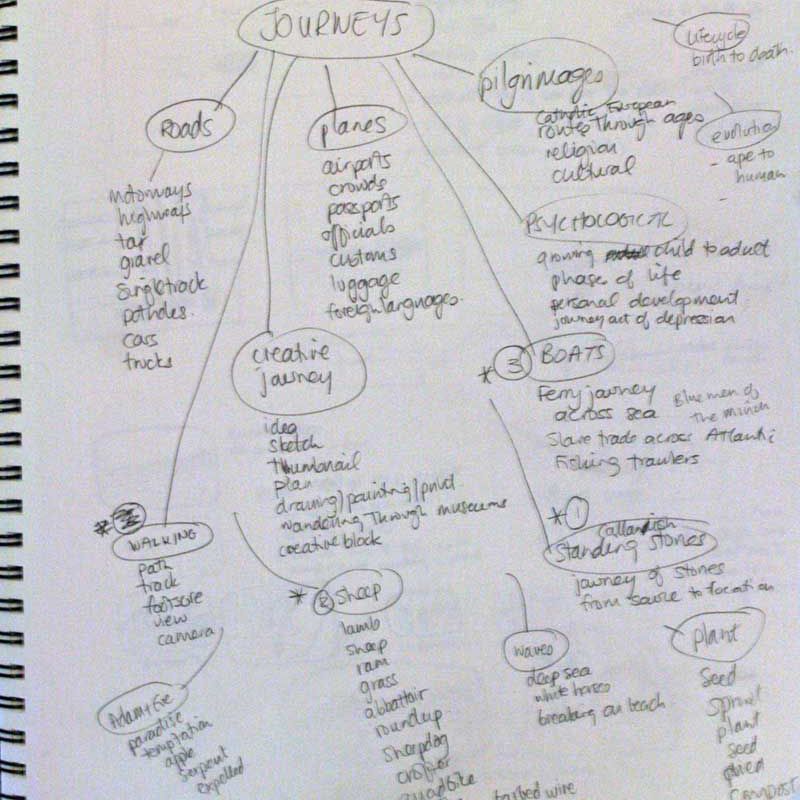 JOURNEYS
Roads
motorways
highways
tar
gravel
singletrack
potholes
cars
trucks
planes
airports
crowds
passports
officials
customs
luggage
foreign languages
pilgrimages
catholic European
routes through ages
religion
cultural
Lifecycle
birth to death
evolution
- ape to
human
-
PSYCHOLOGICAL
growing child to adult
phase of life
personal development
journey out of depression
creative
journey
idea
sketch
thumbnail
plan
drawing/painting/print
wandering through museums
creative block
* 3 BOATS
Ferry journey
across sea
Blue men of
The Minch
Slave trade across Atlantic
Fishing trawlers
* 1
Callanish
Standing stones
journey of stones
from source to location
*
WALKING
path
track
footsore
view
camera
Adam + Eve
paradise
temptation
apple
serpent
expelled
* 2 Sheep
lamb
sheep
ram
grass
abbattoir
roundup
sheepdog
crofter
quadbike
barbed wire
waves
deep sea
white horses
breaking on beach
plant
seed
sprout
plant
seed
compost